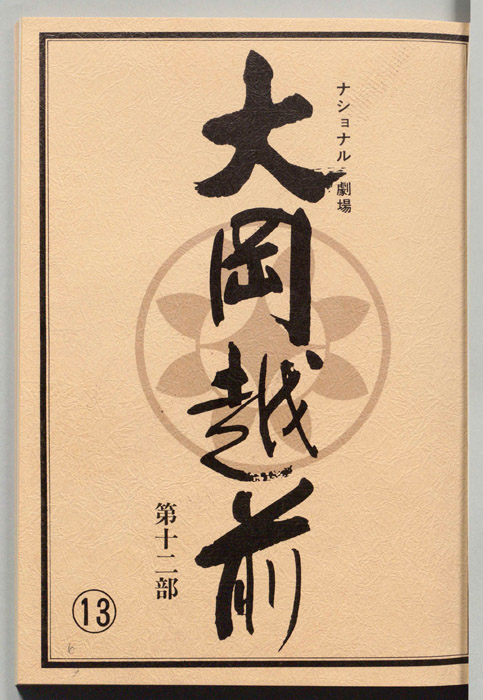 ナショナル劇場
大岡越前
第十二部
13
6